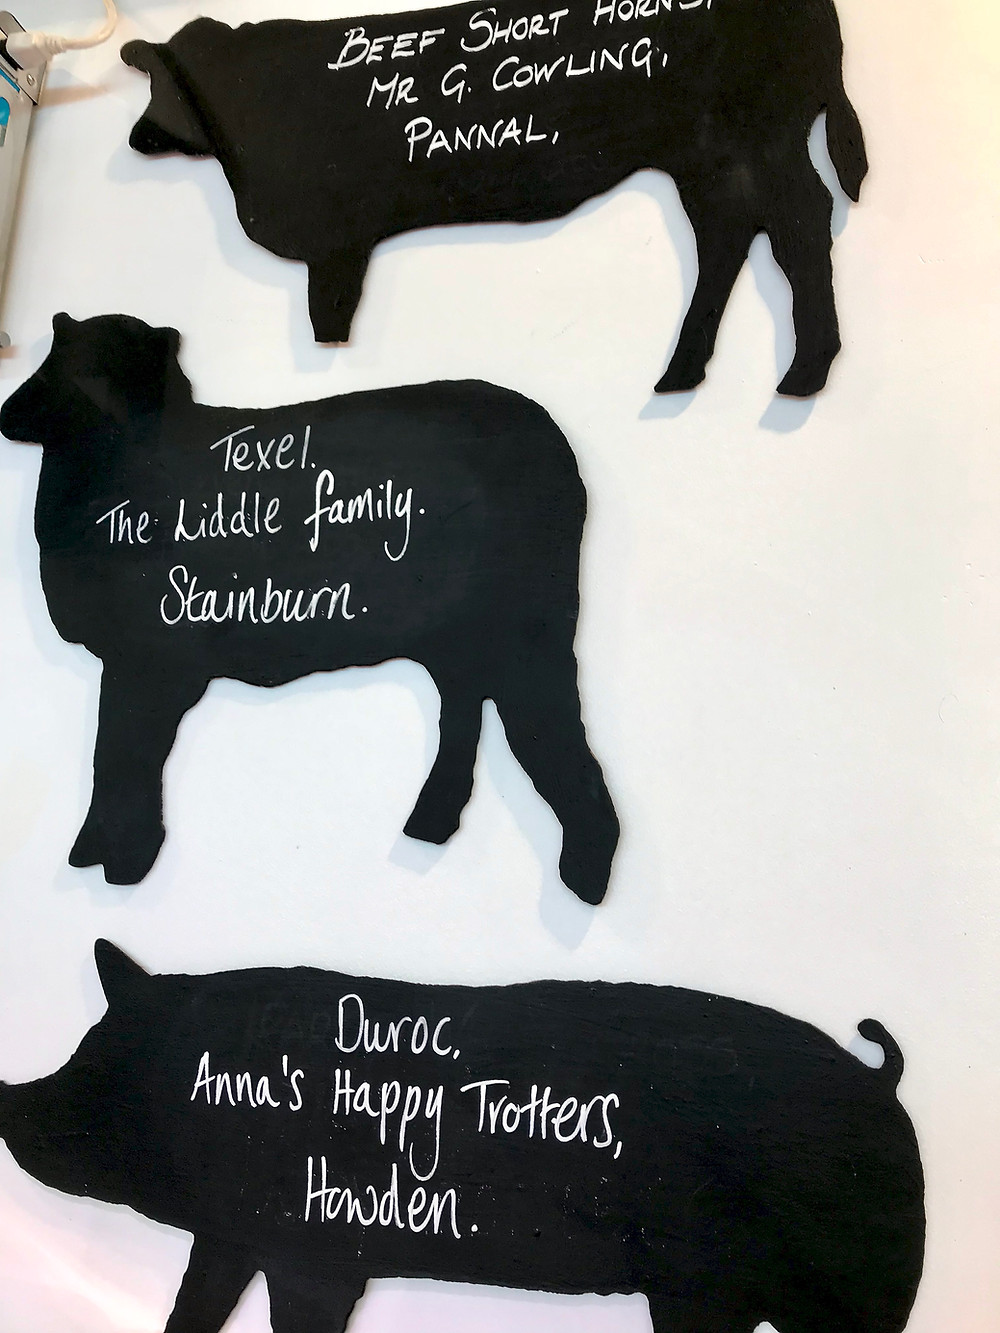 BEEF SHORT HORNS,
MR G. COWLING,
PANNAL,
Texel.
The Liddle family.
Stainburn.
Duroc,
Anna's Happy Trotters,
Howden.